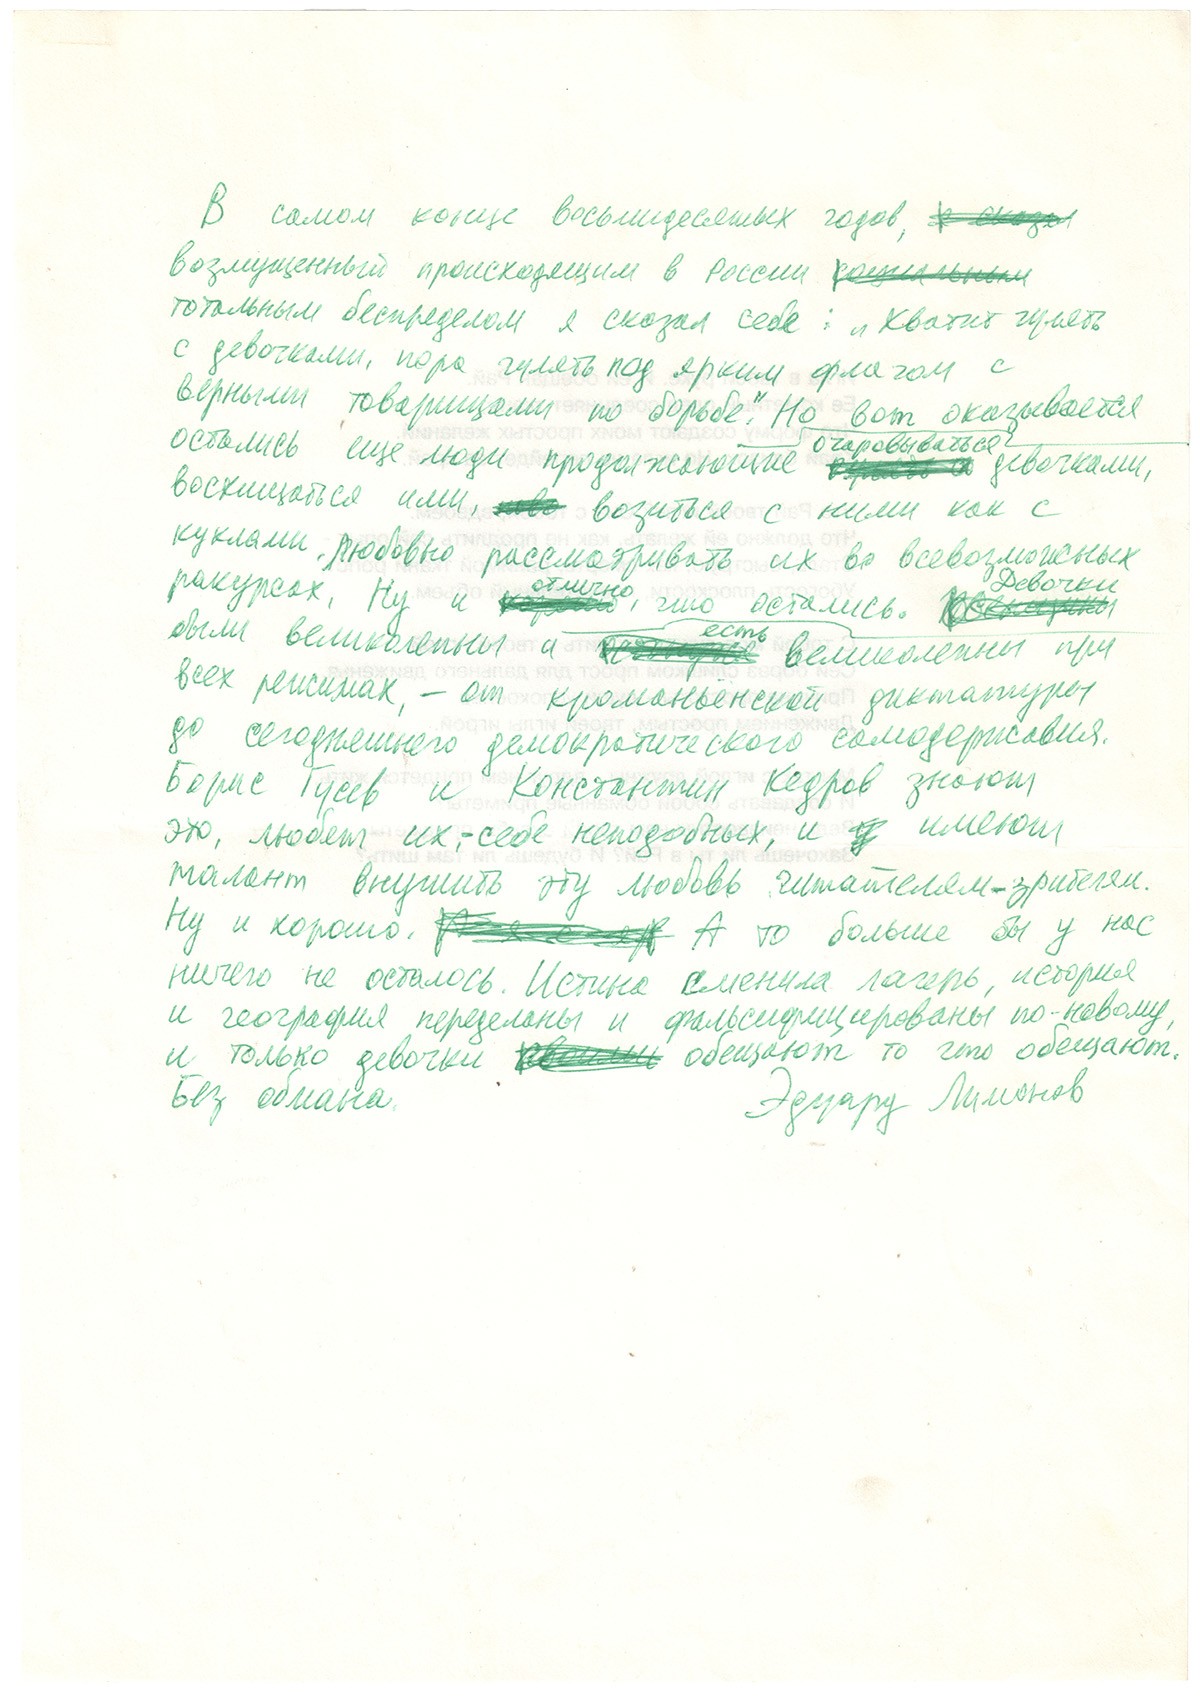 В самом конце восьмидесятых годов, я сказал
возмущенный происходящим в России социальным
тотальным беспределом я сказал себе: „Хватит гулять
с девочками, пора гулять под ярким флагом с
верными товарищами по борьбе". Но вот оказывается
остались еще люди продолжающие очаровываться девочками,
восхищаться ими, возиться с ними как с
куклами, любовно рассматривать их во всевозможных
ракурсах. Ну и отлично, что остались. Девочки
были великолепны и есть великолепны при
всех режимах, – от кроманьёнской диктатуры
до сегодняшнего демократического самодержавия.
Борис Гусев и Константин Кедров знают
это, любят их, – себе неподобных, и имеют
талант внушить эту любовь читателям-зрителям.
Ну и хорошо. А то больше бы у нас
ничего не осталось. Истина сменила лагерь, история
и география переделаны и фальсифицированы по-новому,
и только девочки обещают то что обещают.
Без обмана. Эдуард Лимонов